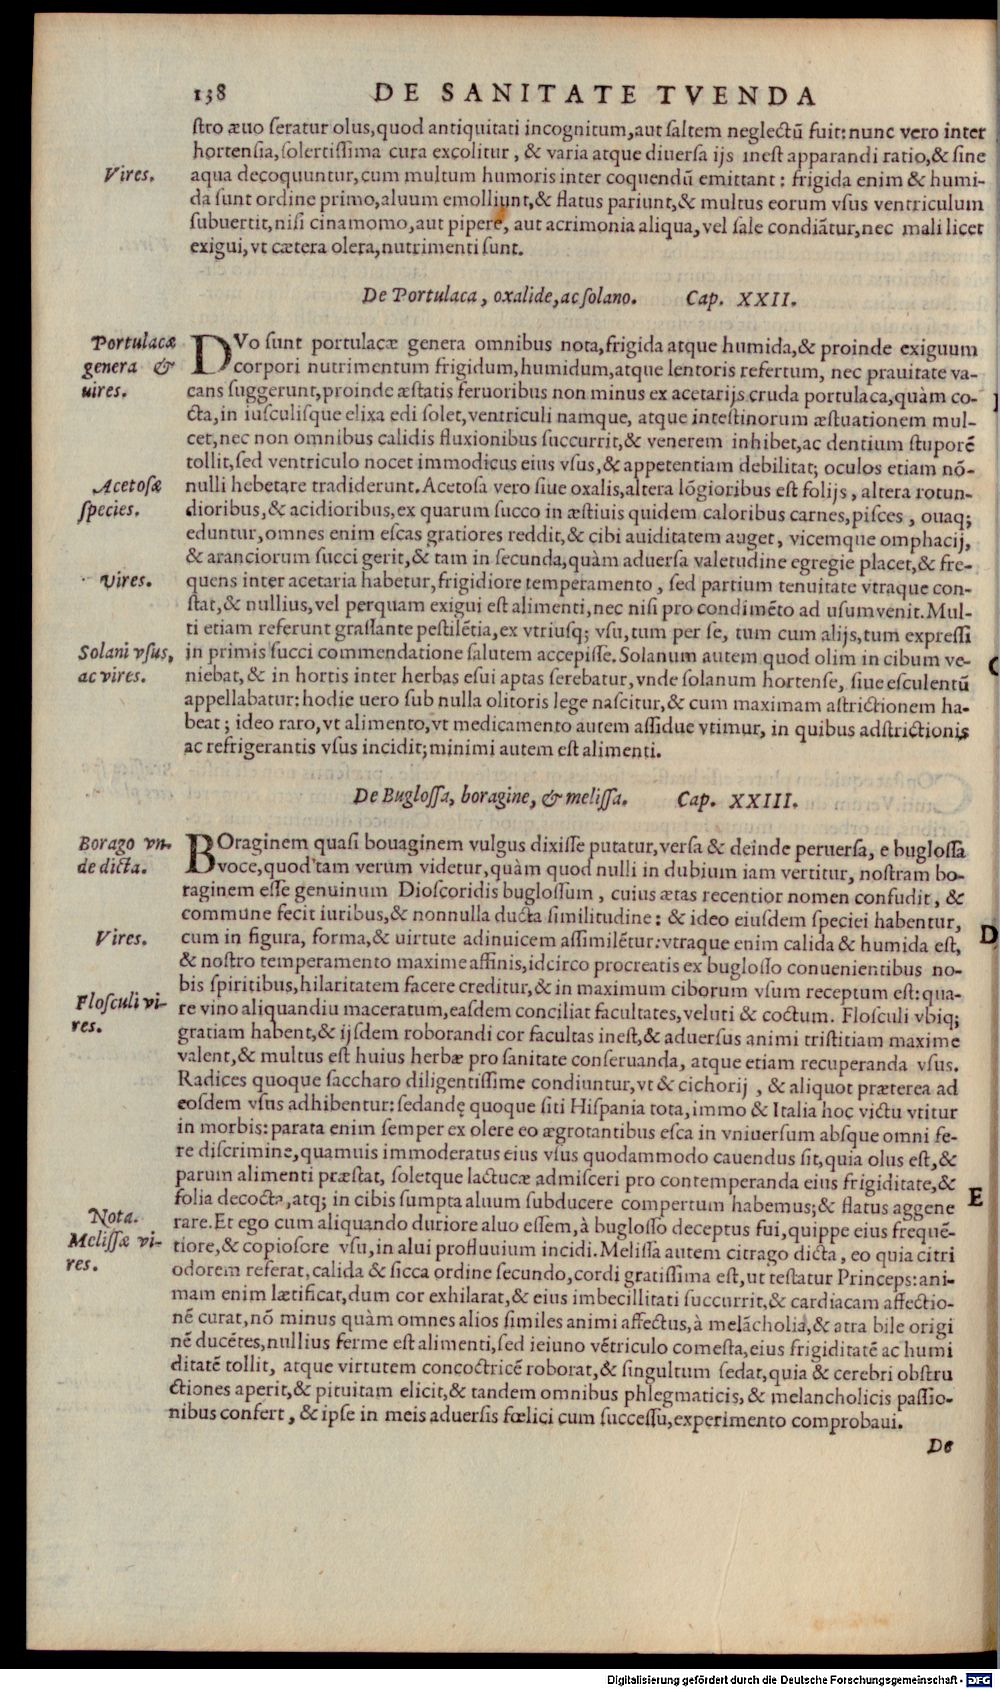 138 DE SANITATE TVENDA
ſtro æuo ſeratur olus,quod antiquitati incognitum,aut ſaltem neglectū fuit: nunc vero inter
hortenſia,ſolertiſſima cura excolitur, & varia atque diuerſa ijs ineſt apparandi ratio,& ſine
Vires.
aqua decoquuntur,cum multum humoris inter coquendū emittant: frigida enim & humi-
da ſunt ordine primo,aluum emolliunt,& flatus pariunt,& multus eorum vſus ventriculum
ſubuertit,niſi cinamomo,aut pipere, aut acrimonia aliqua,vel ſale condiātur,nec mali licet
exigui,vt cætera olera,nutrimenti ſunt.
De Portulaca, oxalide, ac ſolano. Cap. XXII.
Portulacæ
genera &
uires.
DVo ſunt portulacæ genera omnibus nota,frigida atque humida,& proinde exiguum
corpori nutrimentum frigidum,humidum,atque lentoris refertum, nec prauitate va-
cans ſuggerunt,proinde æſtatis feruoribus non minus ex acetarijs cruda portulaca,quàm co-
cta,in iuſculiſque elixa edi ſolet,ventriculi namque, atque inteſtinorum æſtuationem mul-
cet,nec non omnibus calidis fluxionibus ſuccurrit,& venerem inhibet,ac dentium ſtuporē
tollit,ſed ventriculo nocet immodicus eius vſus,& appetentiam debilitat; oculos etiam nō-
Acetoſæ
ſpecies.
nulli hebetare tradiderunt. Acetoſa vero ſiue oxalis,altera lōgioribus eſt folijs, altera rotun-
dioribus,& acidioribus,ex quarum ſucco in æſtiuis quidem caloribus carnes,piſces, ouaq;
eduntur,omnes enim eſcas gratiores reddit,& cibi auiditatem auget, vicemque omphacij,
& aranciorum ſucci gerit,& tam in ſecunda,quàm aduerſa valetudine egregie placet,& fre-
Vires.
quens inter acetaria habetur,frigidiore temperamento, ſed partium tenuitate vtraque con-
ſtat,& nullius,vel perquam exigui eſt alimenti,nec niſi pro condimēto ad uſum venit. Mul-
ti etiam referunt graſſante peſtilētia,ex vtriuſq; vſu,tum per ſe, tum cum alijs,tum expreſſi
Solani vſus,
ac vires.
in primis ſucci commendatione ſalutem accepiſſe. Solanum autem quod olim in cibum ve-
niebat,& in hortis inter herbas eſui aptas ſerebatur,vnde ſolanum hortenſe, ſiue eſculentū
appellabatur: hodie uero ſub nulla olitoris lege naſcitur,& cum maximam aſtrictionem ha-
beat; ideo raro,vt alimento,vt medicamento autem aſſidue vtimur, in quibus adſtrictionis
ac refrigerantis vſus incidit;minimi autem eſt alimenti.
De Bugloſſa, boragine, & meliſſa. Cap. XXIII.
Borago vn-
de dicta.
BOraginem quaſi bouaginem vulgus dixiſſe putatur,verſa & deinde peruerſa, e bugloſſa
voce,quod tam verum videtur,quàm quod nulli in dubium iam vertitur, noſtram bo-
raginem eſſe genuinum Dioſcoridis bugloſſum, cuius ætas recentior nomen confudit, &
commune fecit iuribus,& nonnulla ducta ſimilitudine: & ideo eiuſdem ſpeciei habentur,
Vires.
cum in figura, forma,& uirtute adinuicem aſſimilētur: vtraque enim calida & humida eſt,
& noſtro temperamento maxime affinis,idcirco procreatis ex bugloſſo conuenientibus no-
bis ſpiritibus,hilaritatem facere creditur,& in maximum ciborum vſum receptum eſt: qua-
Floſculi vi-
res.
re vino aliquandiu maceratum,eaſdem conciliat facultates,veluti & coctum. Floſculi vbiq;
gratiam habent,& ijſdem roborandi cor facultas ineſt,& aduerſus animi triſtitiam maxime
valent,& multus eſt huius herbæ pro ſanitate conſeruanda, atque etiam recuperanda vſus.
Radices quoque ſaccharo diligentiſſime condiuntur,vt & cichorij, & aliquot præterea ad
eoſdem vſus adhibentur: ſedandę quoque ſiti Hiſpania tota,immo & Italia hoc victu vtitur
in morbis: parata enim ſemper ex olere eo ægrotantibus eſca in vniuerſum abſque omni fe-
re diſcrimine,quamuis immoderatus eius vſus quodammodo cauendus ſit,quia olus eſt,&
parum alimenti præſtat, ſoletque lactucæ admiſceri pro contemperanda eius frigiditate,&
folia decocta,atq; in cibis ſumpta aluum ſubducere compertum habemus;& flatus aggene
Nota.
rare. Et ego cum aliquando duriore aluo eſſem, à bugloſſo deceptus fui,quippe eius frequē-
Meliſſæ vi-
res.
tiore,& copioſore vſu,in alui profluuium incidi. Meliſſa autem citrago dicta, eo quia citri
odorem referat,calida & ſicca ordine ſecundo,cordi gratiſſima eſt,ut teſtatur Princeps: ani-
mam enim lætificat,dum cor exhilarat,& eius imbecillitati ſuccurrit,& cardiacam affectio-
nē curat,nō minus quàm omnes alios ſimiles animi affectus,à melācholia,& atra bile origi
nē ducētes,nullius ferme eſt alimenti,ſed ieiuno vētriculo comeſta,eius frigiditatē ac humi
ditatē tollit, atque virtutem concoctricē roborat,& ſingultum ſedat,quia & cerebri obſtru
ctiones aperit,& pituitam elicit,& tandem omnibus phlegmaticis,& melancholicis paſſio-
nibus confert, & ipſe in meis aduerſis fœlici cum ſucceſſu,experimento comprobaui.
De
D
E
Digitalisierung gefördert durch die Deutsche Forschungsgemeinschaft - DFG